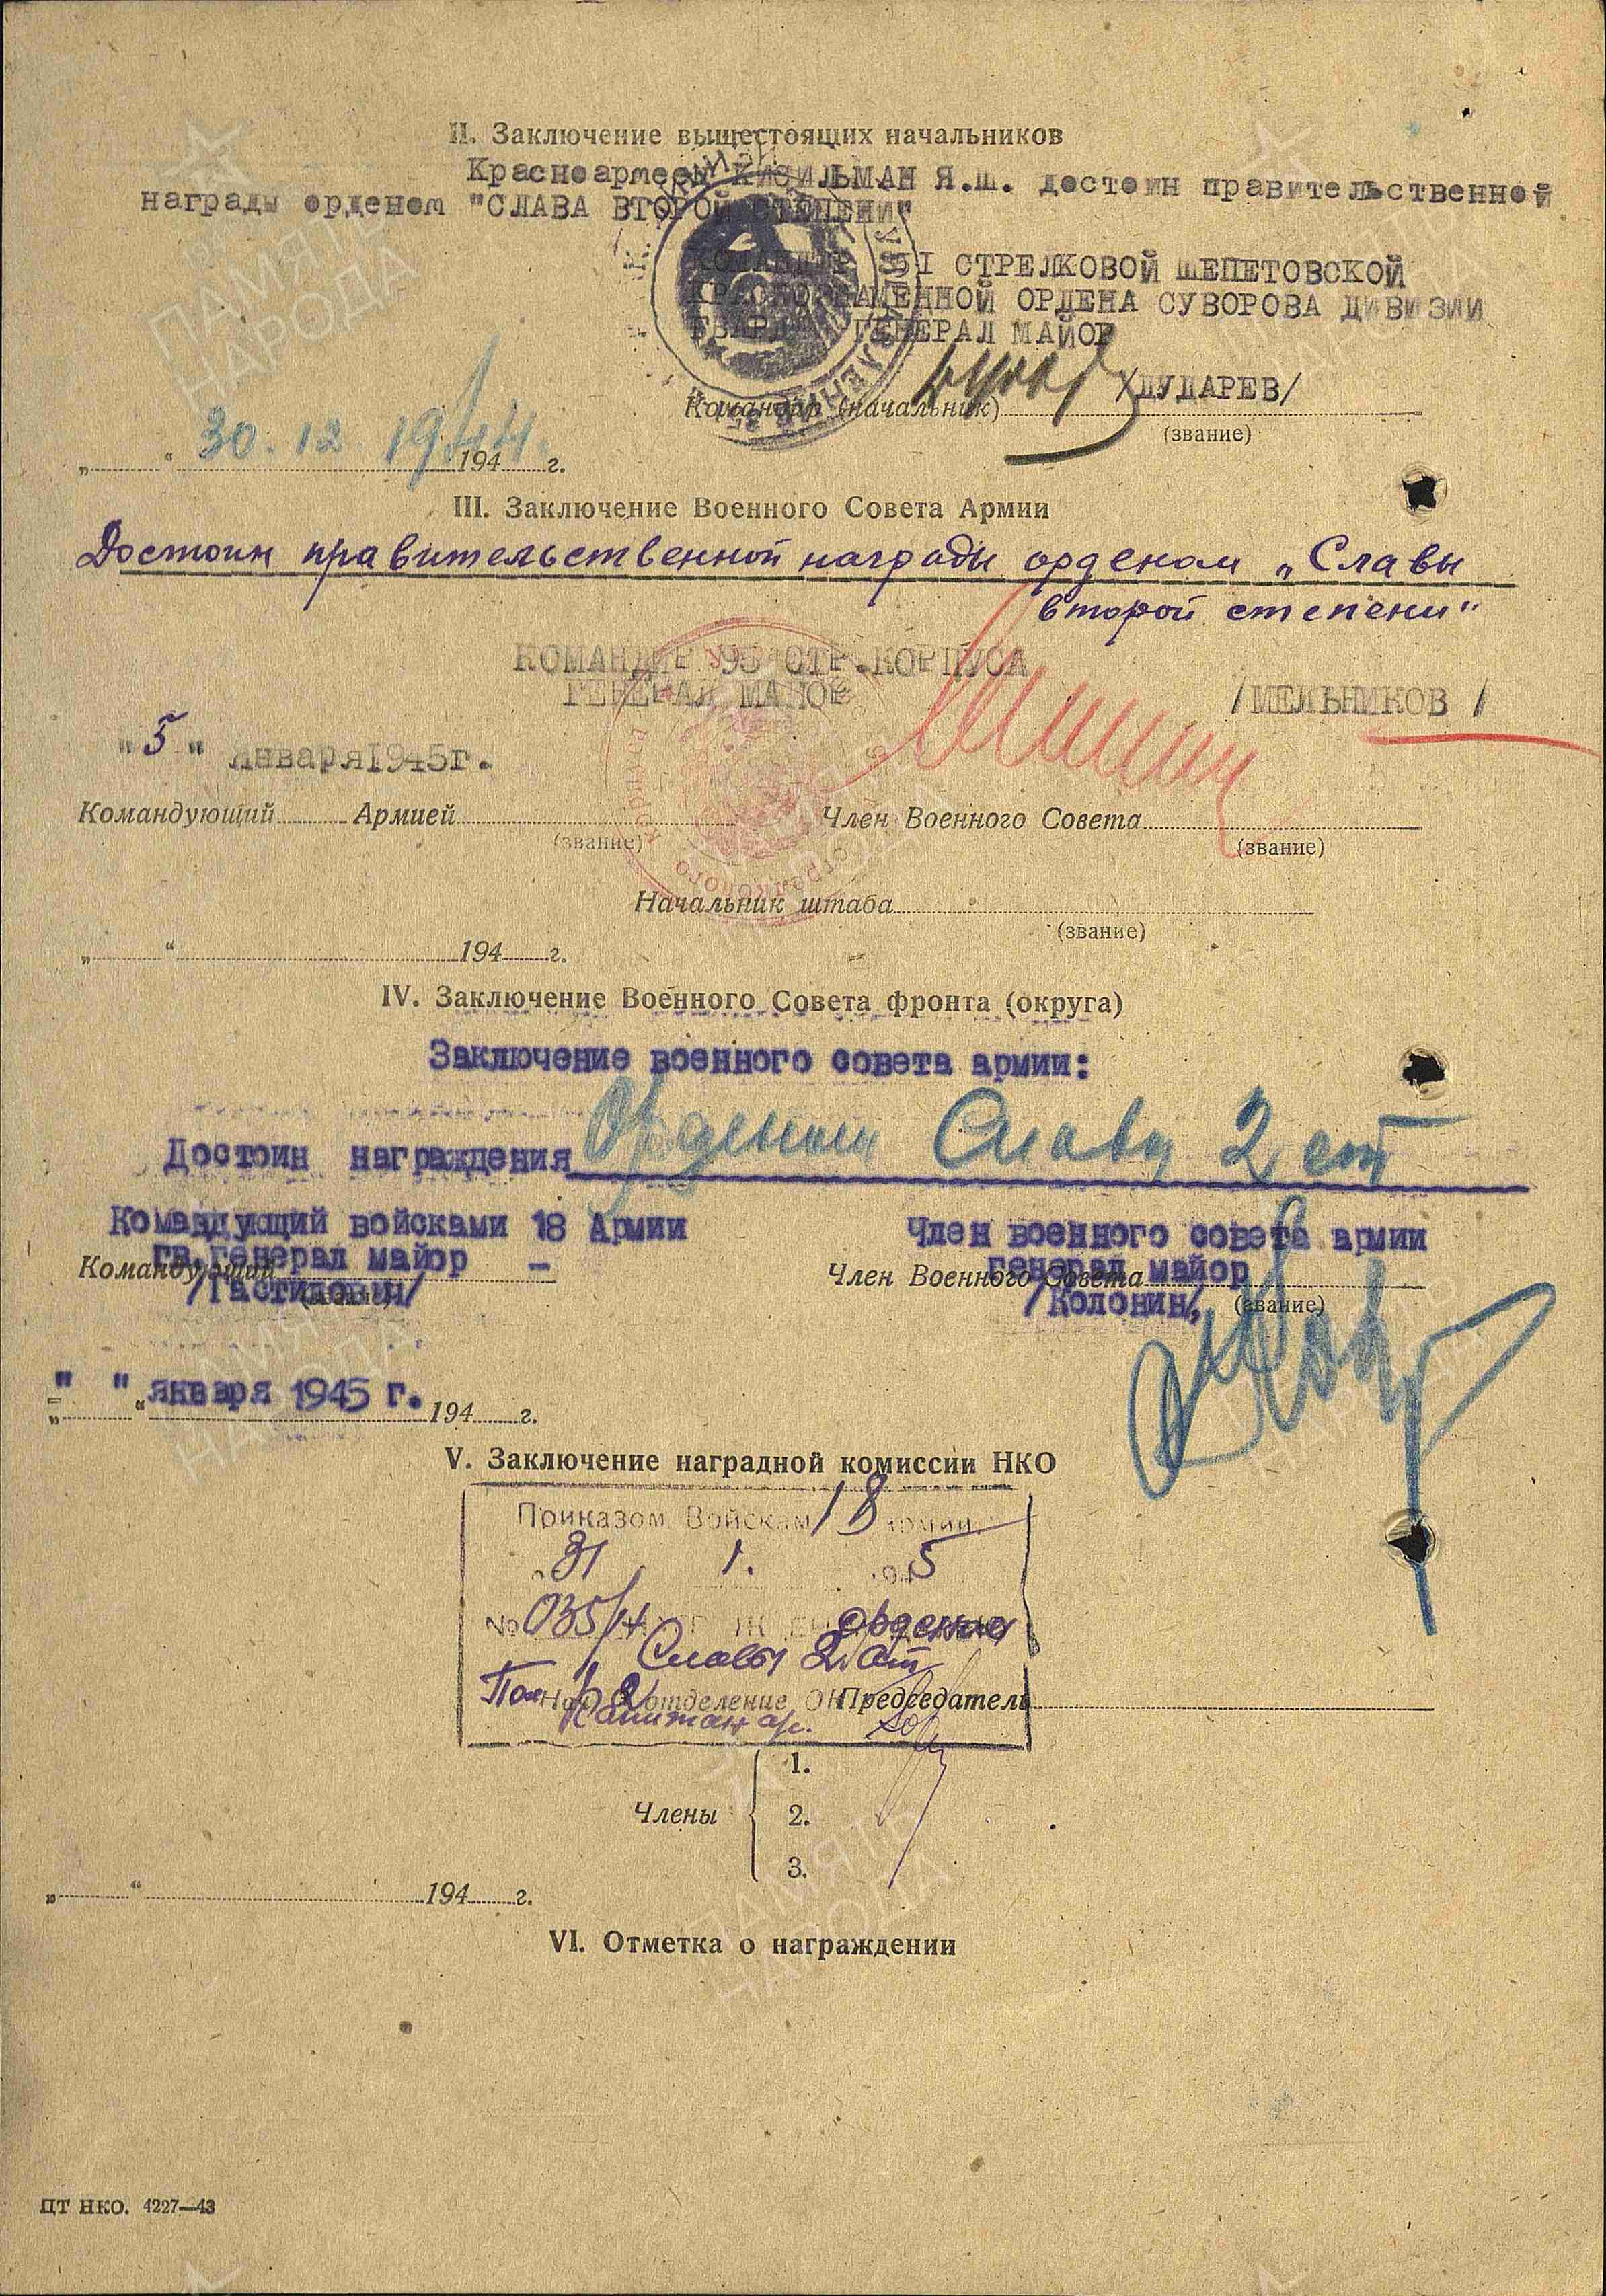 II. Заключение вышестоящих начальников
Красноармеец КИЗИЛЬМАН Я.Ш. достоин правительственной
награды орденом "СЛАВА ВТОРОЙ СТЕПЕНИ"
КОМАНДИР 351 СТРЕЛКОВОЙ ШЕПЕТОВСКОЙ
КРАСНОЗНАМЕННОЙ ОРДЕНА СУВОРОВА ДИВИЗИИ
ГВАРДИИ ГЕНЕРАЛ МАЙОР
/ДУДАРЕВ/
Командир (начальник)
(звание)
30.12 1944.
„ “ 194 г.
III. Заключение Военного Совета Армии
Достоин правительственной награды орденом „Славы
второй степени"
КОМАНДИР 95 СТР.КОРПУСА
ГЕНЕРАЛ МАЙОР /МЕЛЬНИКОВ /
"5" января 1945г.
Командующий Армией Член Военного Совета
(звание) (звание)
Начальник штаба
(звание)
„ “ 194 г.
IV. Заключение Военного Совета фронта (округа)
Заключение военного совета армии:
Достоин награждения Орденом Слава 2 ст
Командующий войсками 18 Армии Член военного совета армии
гв. генерал майор - генерал майор
Командующий Член Военного Совета
/Гастилович/ /Колонин/
(звание) (звание)
" " января 1945 г.
„ “ 194 г.
V. Заключение наградной комиссии НКО
Приказом Войскам 18 армии
31 1. 1945
№ 035/н орденом
Славы 2 ст
отделение Председатель
Капитан а/с.
1.
Члены 2.
3.
„ “ 194 г.
VI. Отметка о награждении
ЦТ НКО. 4227—43
ПАМЯТЬ НАРОДА